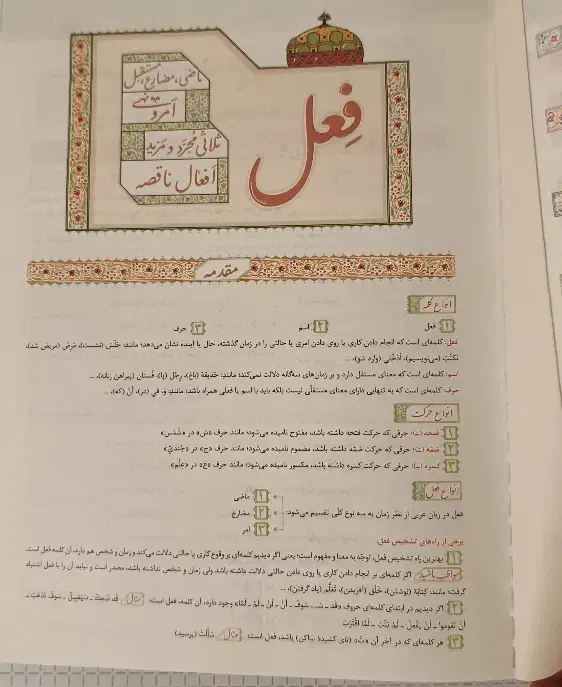 فِعل
ماضی، مضارع، مستقبل
اَمر و نهی
ثلاثی مُجَرّد و مَزید
اَفعال ناقصه
مقدمه
انواع کلمه
۱ فعل ۲ اسم ۳ حرف
فعل: کلمه‌ای است که انجام دادن کاری یا روی دادن امری یا حالتی را در زمان گذشته، حال یا آینده نشان می‌دهد؛ مانند: جَلَسَ (نشست)، مَرِضَ (مریض شد)،
نَکتُبُ (می‌نویسیم)، اُدخُلی (وارد شو)، ...
اسم: کلمه‌ای است که معنای مستقل دارد و بر زمان‌های سه‌گانه دلالت نمی‌کند؛ مانند: حَدیقة (باغ)، رِجل (پا)، فُستان (پیراهن زنانه)، ...
حرف: کلمه‌ای است که به تنهایی دارای معنای مستقلّی نیست بلکه باید با اسم یا فعلی همراه باشد؛ مانند: وَ، فی (در)، أنَّ (که)، ...
انواع حرکت
۱ فتحه (ــَـ): حرفی که حرکت فتحه داشته باشد، مفتوح نامیده می‌شود؛ مانند حرف «ش» در «شَمْس»
۲ ضمّه (ــُـ): حرفی که حرکت ضمّه داشته باشد، مضموم نامیده می‌شود؛ مانند حرف «ج» در «جُندیّ»
۳ کسره (ــِـ): حرفی که حرکت کسره داشته باشد، مکسور نامیده می‌شود؛ مانند حرف «ع» در «عِلْم»
انواع فعل
فعل در زبان عربی از نظر زمان به سه نوع کلّی تقسیم می‌شود:
۱ ماضی
۲ مضارع
۳ امر
برخی از راه‌های تشخیص فعل:
۱ بهترین راه تشخیص فعل، توجّه به معنا و مفهوم است؛ یعنی اگر دیدیم کلمه‌ای بر وقوع کاری یا حالتی دلالت می‌کند و زمان و شخص هم دارد، آن کلمه فعل است.
مواظب باشید اگر کلمه‌ای بر انجام دادن کاری یا روی دادن حالتی دلالت داشته باشد ولی زمان و شخص نداشته باشد، مصدر است و نباید آن را با فعل اشتباه
گرفت؛ مانند: کِتابَة (نوشتن)، خَلْق (آفریدن)، تَعَلُّم (یاد گرفتن)، ...
۲ اگر دیدیم در ابتدای کلمه‌ای حروف «قَد ـ سَـ ـ سَوفَ ـ أنْ ـ لَنْ ـ لَمْ ـ لَمّا» وجود دارد، آن کلمه، فعل است؛ مثال قَد ضَحِکَ ـ سَیَعمَلُ ـ سَوفَ تَذهَبُ ـ
أنْ تَقوموا ـ لَنْ یَفعَلَ ـ لَمْ ـ لَمّا اقتَرَبَ
۳ هر کلمه‌ای که در آخر آن «تْ» (تای کشیدهٔ ساکن) باشد، فعل است؛ مثال سَألَتْ (پرسید)